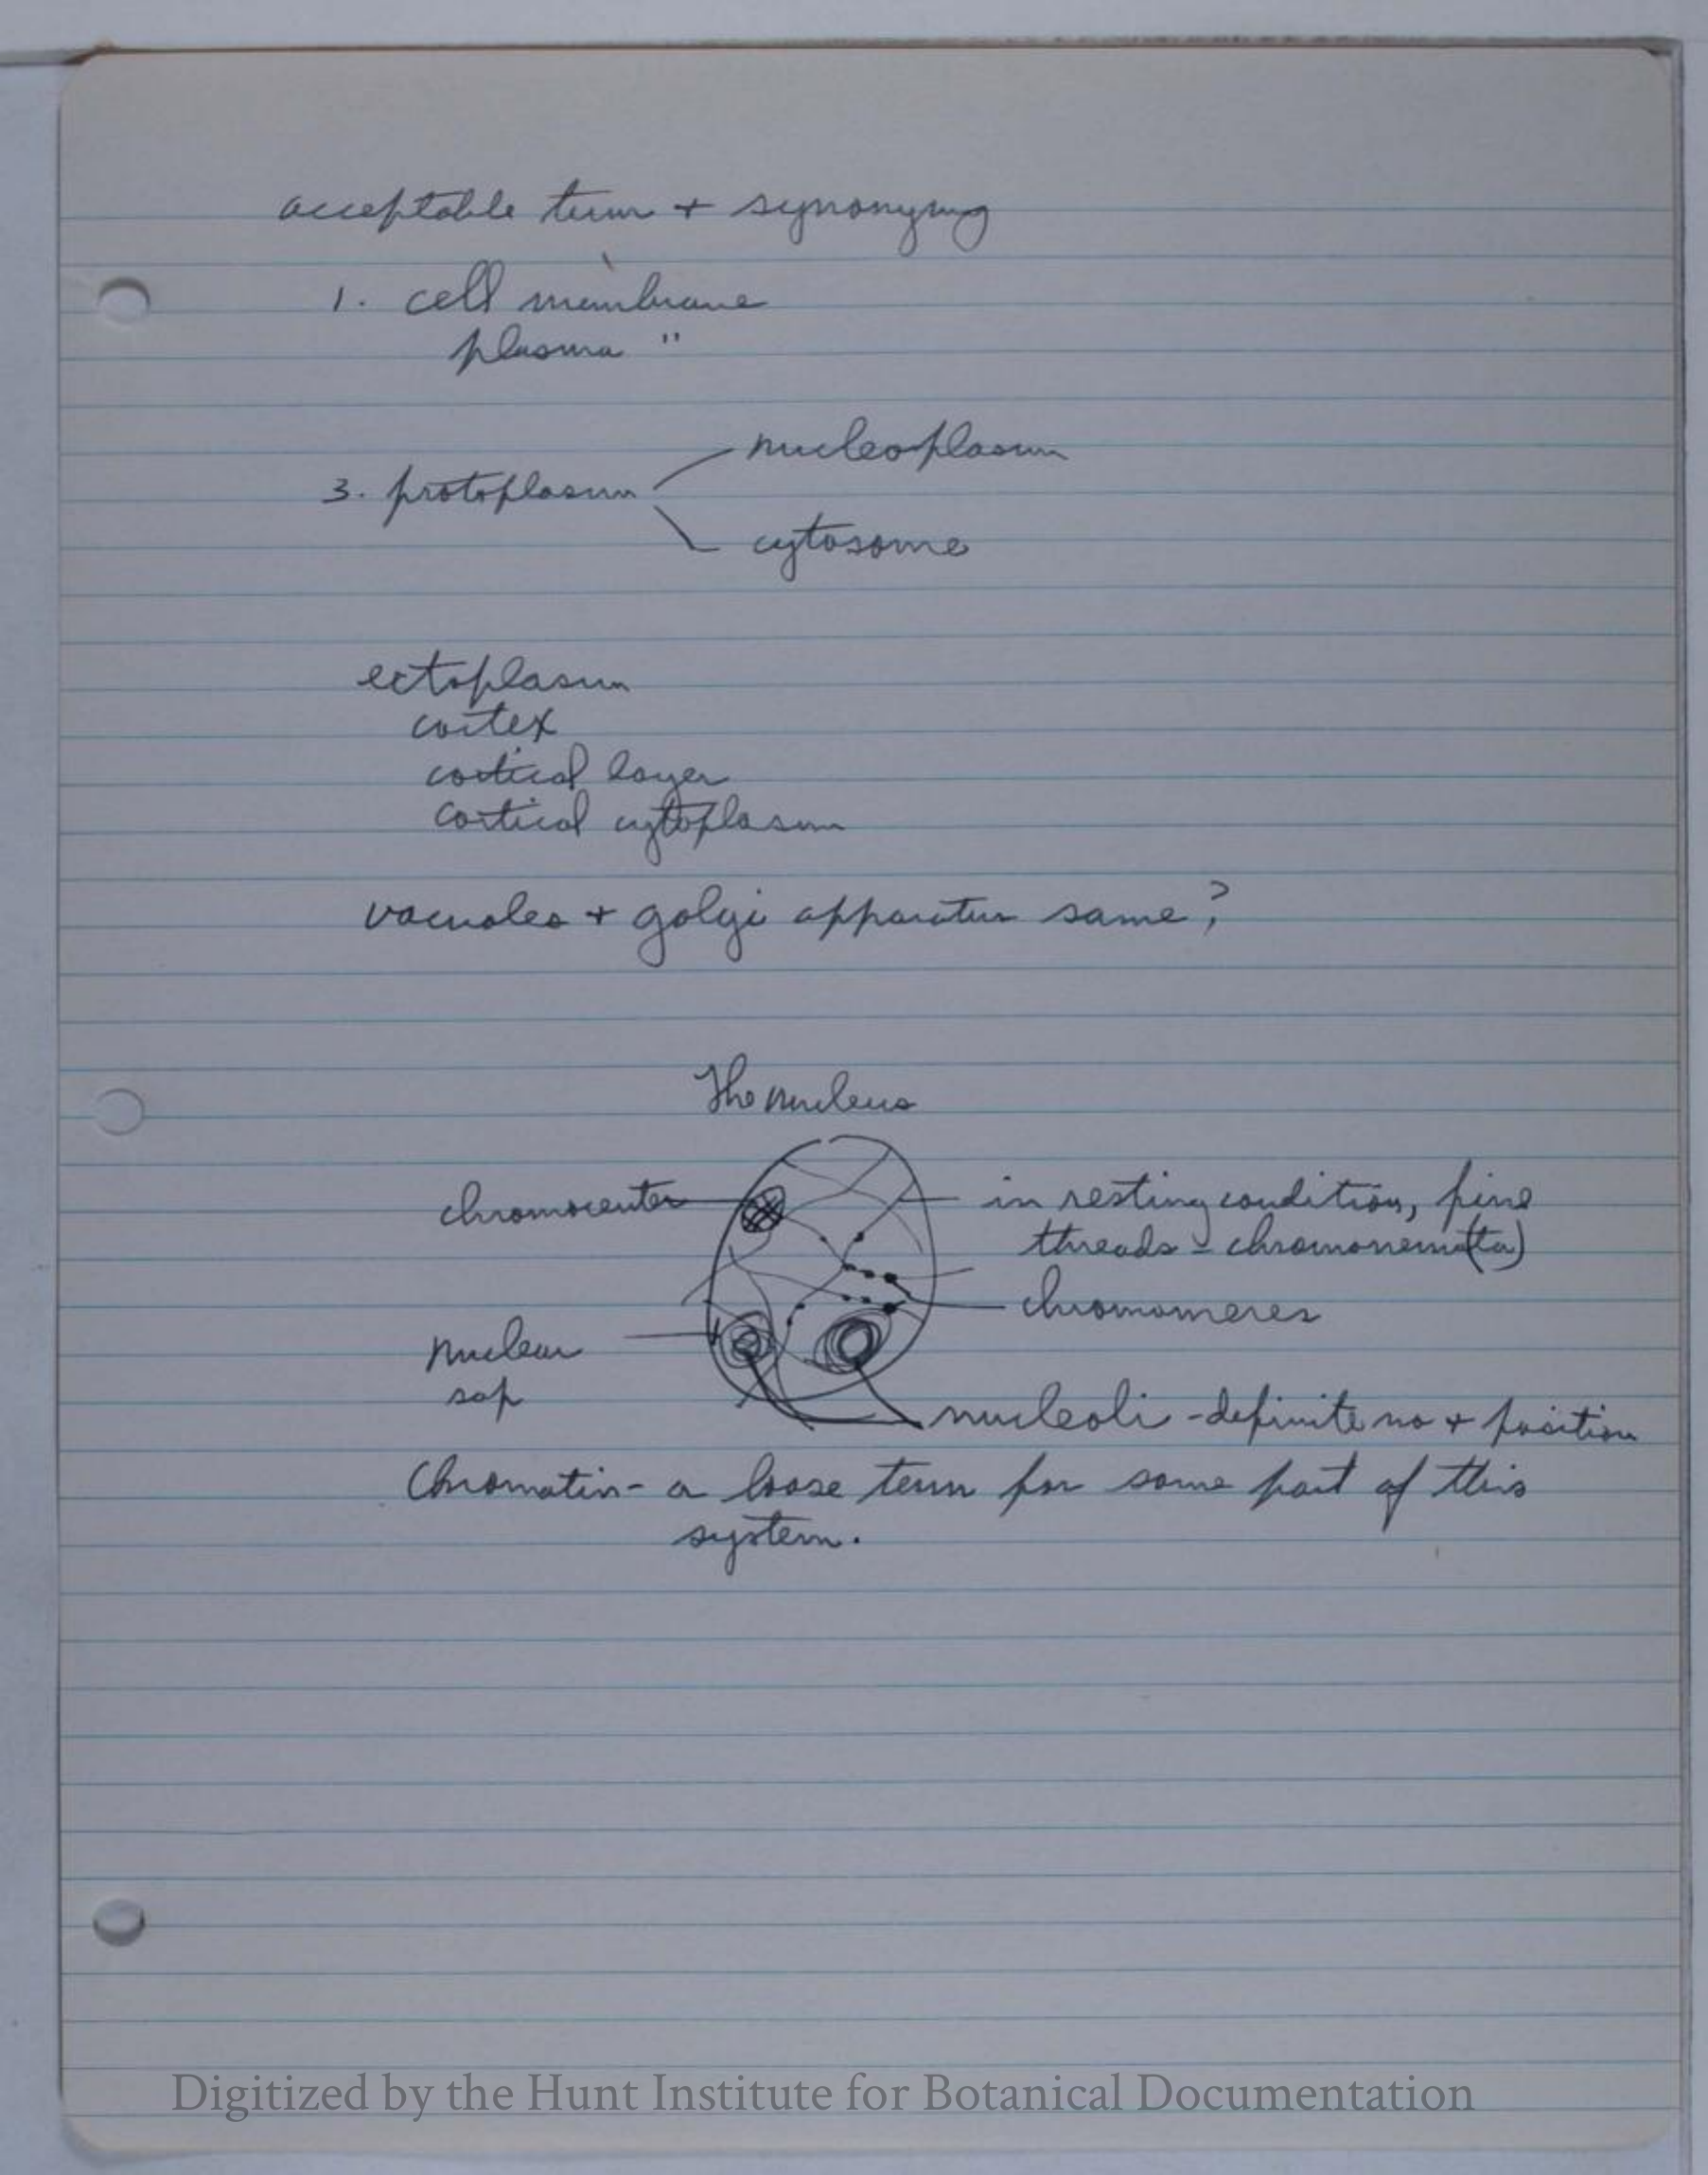 acceptable term + synonymy
1. cell membrane
plasma "
nucleoplasm
3. protoplasm
cytosome
ectoplasm
cortex
cortical layer
cortical cytoplasm
vacuoles + golgi apparatus same?
The nucleus
chromocenter
in resting condition, fine
threads = chromonema(ta)
chromomeres
nuclear
sap
nucleoli - definite no + position
Chromatin - a loose term for some part of this
system.
Digitized by the Hunt Institute for Botanical Documentation